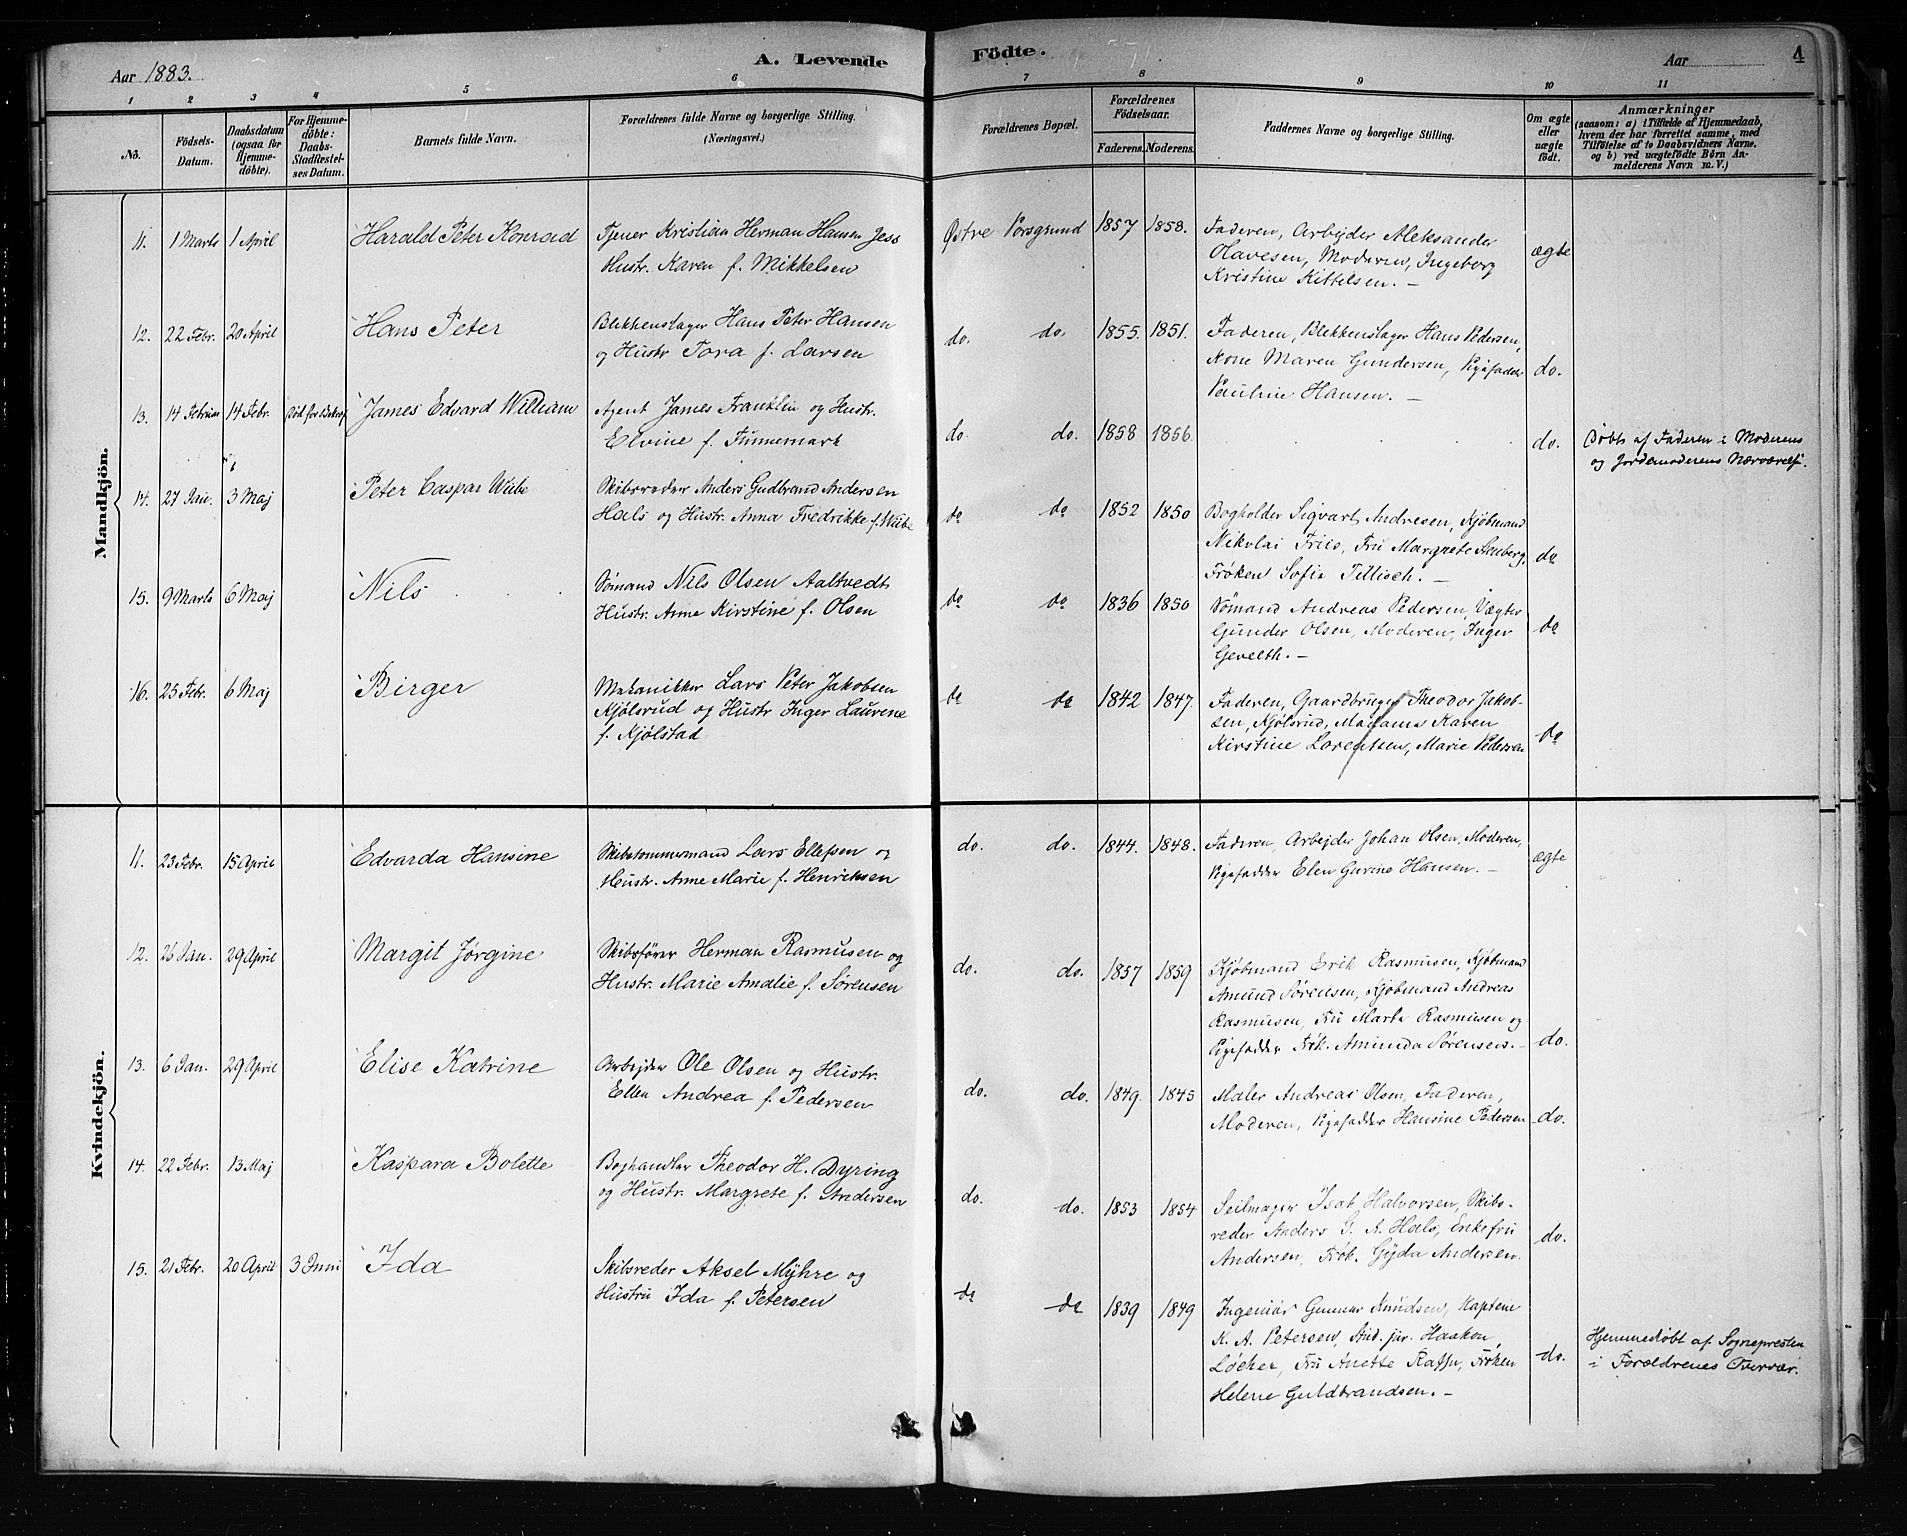 Aar 1883.
A. Levende
Födte.
Aar
4
1 2 3 4 5 6 7 8 9 10 11
No.
Födsels-
Datum.
Daabsdatum
(ogsaa for
Hjemme-
døbte).
For Hjemme-
döbte:
Daabs-
Stadfæstel-
ses Datum.
Barnets fulde Navn.
Forældrenes fulde Navne og borgerlige Stilling.
(Næringsvei.)
Forældrenes Bopæl.
Forældrenes
Födselsaar.
Faderens. Moderens.
Faddernes Navne og borgerlige Stilling.
Om ægte
eller
uægte
födt.
Anmærkninger
(saasom: a) i Tilfælde af Hjemmedaab,
hvem der har forrettet samme, med
Tilföielse af to Daabsvidners Navne,
og b) ved uægtefödte Börn An-
melderens Navn m. V.)
Mandkjön.
11. 1 Marts 1 April Harald Peter Konrad
Tjener Kristian Herman Hansen Jess
Hustr. Karen f. Mikkelsen
Østre Porsgrund 1857 1858.
Faderen, Arbejder Aleksander
Olavesen, Moderen, Ingeborg
Kristine Kittelsen. —
ægte
12. 22 Febr. 20 April Hans Peter
Blikkenslager Hans Peter Hansen
og Hustr Tora f. Larsen
do. do. 1855. 1851.
Faderen, Blekkenslager Hans Pedersen,
Kone Maren Gundersen, Pigefadder
Pauline Hansen. —
do.
13. 14 Februar 14 Febr. James Edvard William
Agent James Franklin og Hustr.
Elvine f. Finnemark
do. do. 1858 1856.
do.
Døbt af Faderen i Moderens
og Jordemoderens Nærværelse.
14. 27 Jan. 3 Maj Peter Caspar Wibe
Skibsreder Anders Gudbrand Andersen
Hals og Hustr. Anna Fredrikke f. Wibe
do do 1852 1850
Bogholder Sigvart Andresen, Kjøbmand
Nikolai Friis, Fru Margrete Stenberg,
Frøken Sofie Tillisch. —
do
15. 9 Marts 6 Maj Nils
Sømand Nils Olsen Aaltvedt
Hustr. Anne Kirstine f. Olsen
do do 1836 1850
Sømand Andreas Pedersen, Vægter
Gunder Olsen, Moderen, Inger
Gevelth. —
do
16. 25 Febr. 6 Maj Birger
Mekanikker Lars Peter Jakobsen
Kjølsrud og Hustr Inger Laurene
f. Kjølstad
do do 1842 1847.
Faderen, Gaardbruger Theodor Jakob-
sen, Kjølsrud, Madame Karen
Kirstine Lorentsen, Marie Pedersen
do
Kvindekjön.
11. 23 Febr. 15 April Edvarda Hansine
Skibstømmermand Lars Ellefsen og
Hustr. Anne Marie f. Henriksen
do. do. 1844. 1848.
Faderen, Arbejder Johan Olsen, Moderen,
Pigefadder Elen Gurine Hansen. —
ægte
12. 26 Jan. 29 April Margit Jørgine
Skibsfører Herman Rasmusen og
Hustr. Marie Amalie f. Sørensen
do. do. 1857 1859
Kjøbmand Erik Rasmusen, Kjøbmand
Amund Sørensen, Kjøbmand Andreas
Rasmusen, Fru Marta Rasmusen og
Pigefadder Frøk. Aminda Sørensen. —
do.
13. 6 Jan. 29 April Elise Katrine
Arbejder Ole Olsen og Hustr.
Ellen Andrea f. Pedersen
do. do. 1849. 1845
Maler Andreas Olsen, Faderen,
Moderen, Pigefadder Hansine Pedersen
do.
14. 22 Febr. 13 Maj Kaspara Bolette
Boghandler Theodor H. Dyring
og Hustr. Margrete f. Andersen
do. do. 1853 1854
Seilmager Isak Halvorsen, Skibs-
reder Anders G. A. Hals, Enkefru
Andersen, Frøk. Gyda Andersen.
do.
15. 21 Febr. 20 April 3 Juni Ida
Skibsreder Aksel Myhre og
Hustru Ida f. Petersen
do do 1839 1849
Ingeniør Gunnar Knudsen, Kaptein
K. A. Petersen, Stud. jur. Haakon
Løcher, Fru Anette Rafn, Frøken
Helene Guldbrandsen. —
do.
Hjemmedøbt af Sognepresten
i Forældrenes Overvær.